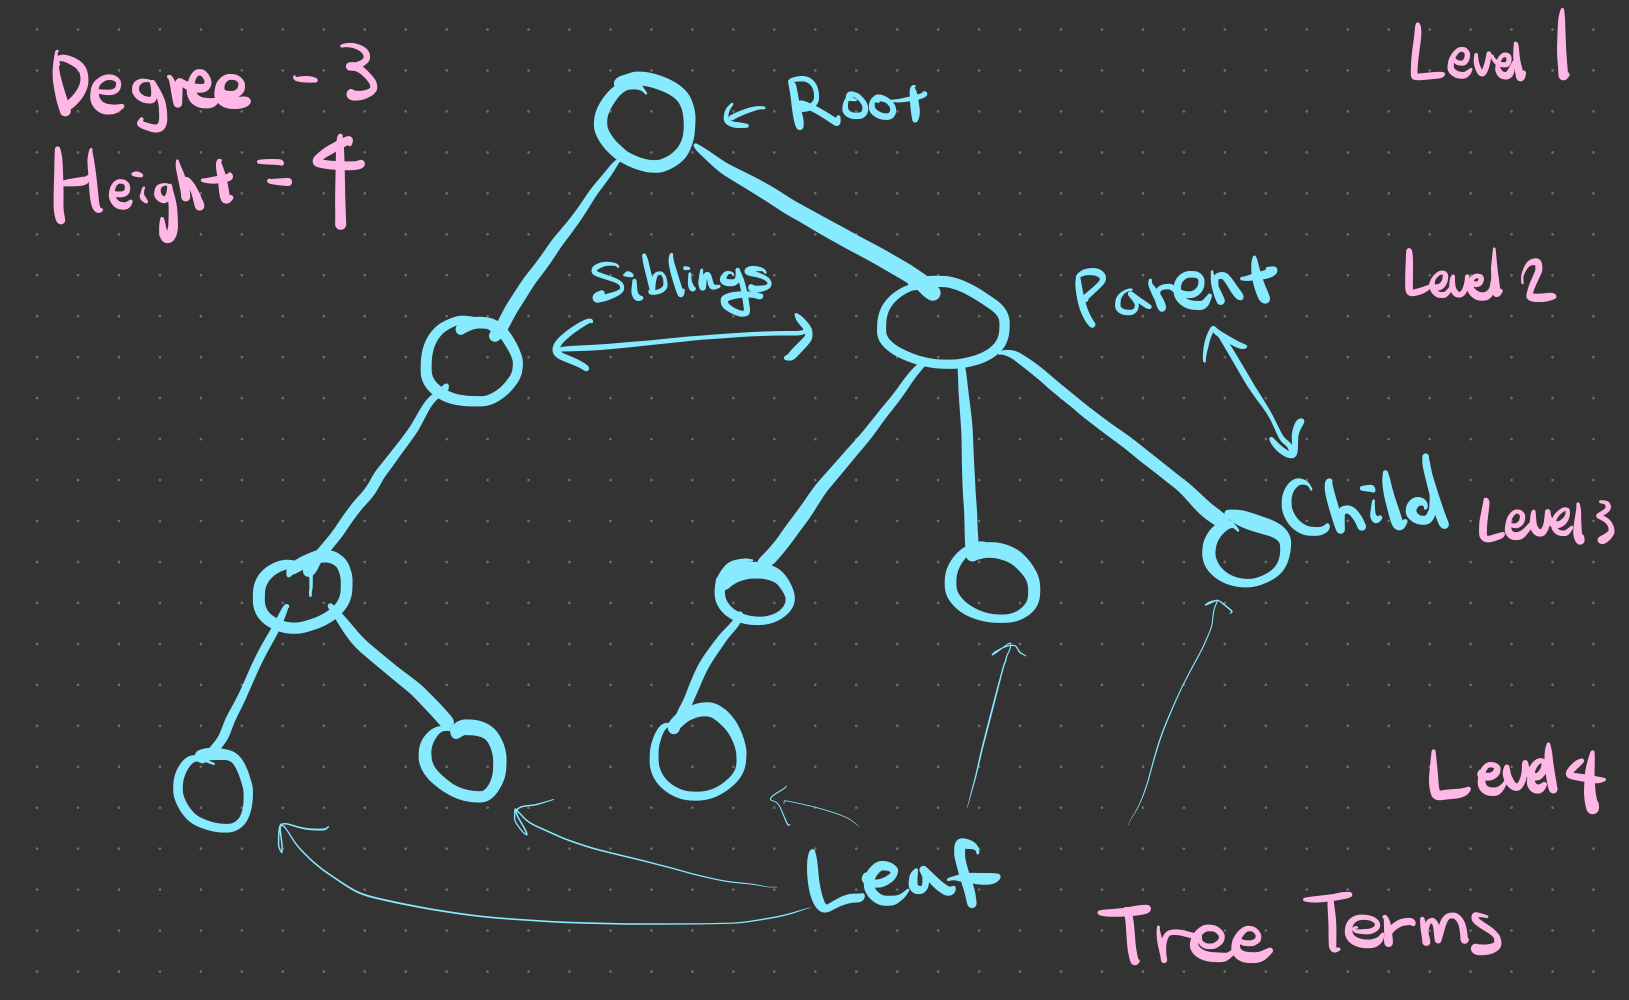 Degree - 3
Height = 4
Root
Level 1
Siblings
Parent
Level 2
Child
Level 3
Level 4
Leaf
Tree Terms